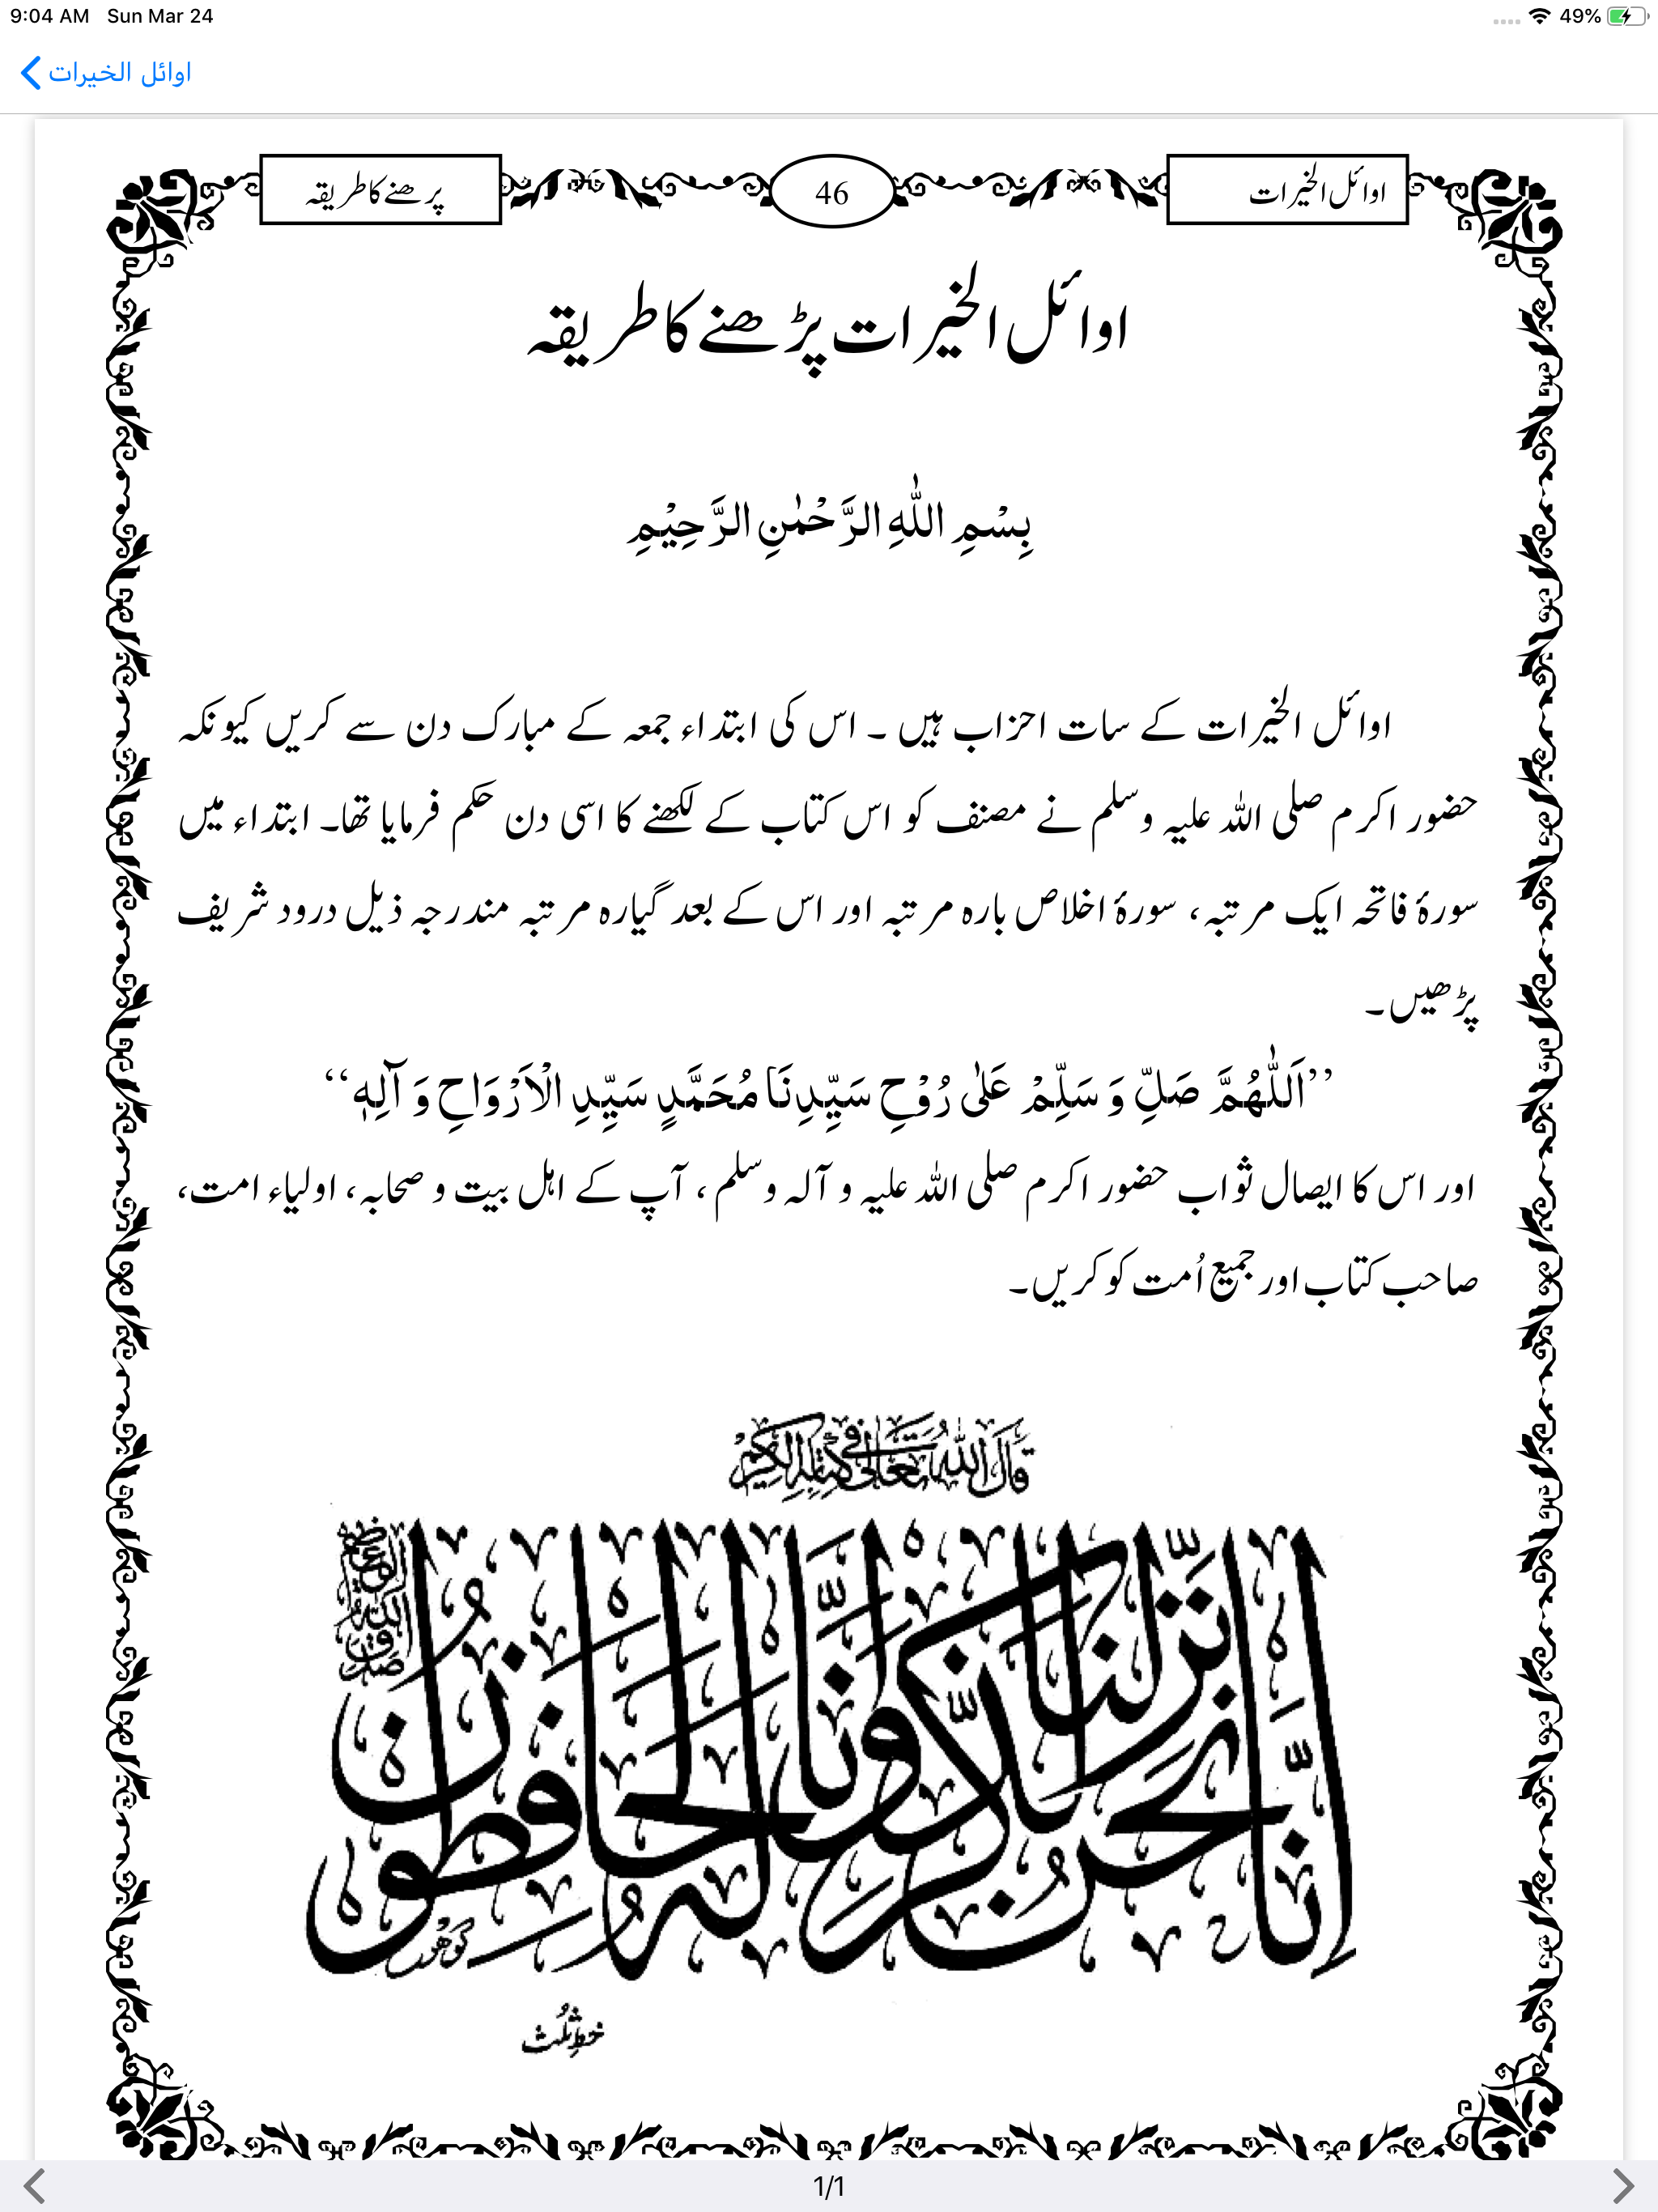 9:04 AM Sun Mar 24
49%
اوائل الخیرات
اوائل الخیرات
46
پرھنے کا طریقہ
اوائل الخیرات پڑھنے کا طریقہ
بِسْمِ اللّٰهِ الرَّحْمٰنِ الرَّحِیْمِ
اوائل الخیرات کے سات احزاب ہیں ۔ اس کی ابتداء جمعہ کے مبارک دن سے کریں کیونکہ
حضور اکرم صلی اللہ علیہ وسلم نے مصنف کو اس کتاب کے لکھنے کا اسی دن حکم فرمایا تھا۔ ابتداء میں
سورۂ فاتحہ ایک مرتبہ، سورۂ اخلاص بارہ مرتبہ اور اس کے بعد گیارہ مرتبہ مندرجہ ذیل درود شریف
پڑھیں۔
’’اَللّٰهُمَّ صَلِّ وَ سَلِّمْ عَلٰی رُوْحِ سَیِّدِنَا مُحَمَّدٍ سَیِّدِ الْاَرْوَاحِ وَ آلِهٖ‘‘
اور اس کا ایصال ثواب حضور اکرم صلی اللہ علیہ و آلہ وسلم ، آپ کے اہل بیت و صحابہ، اولیاء امت،
صاحب کتاب اور جمیع اُمت کو کریں۔
قَالَ اللّٰهُ تَعَالٰی فِی کِتَابِهِ الْکَرِیْمِ
اِنَّا نَحْنُ نَزَّلْنَا الذِّكْرَ وَاِنَّا لَهُ لَحَافِظُوْنَ
صدق الله العظیم
گوھر
خطِ ثُلُث
1/1